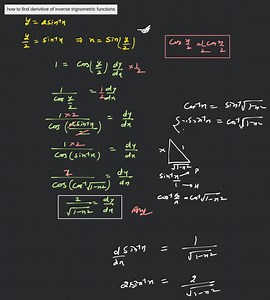 how to find derivitive of inverse trignometric functions
y = 2sin⁻¹x
y/2 = sin⁻¹x ⇒ x = sin(y/2)
cos y/2 = 1/2 cos y/2
1 = cos(y/2) dy/dx × 1/2
1/cos y/2 = 1/2 dy/dx
1×2/cos(2sin⁻¹x/2) = dy/dx
1×2/cos(sin⁻¹x) = dy/dx
2/cos(cos⁻¹√1-x²) = dy/dx
2/√1-x² = dy/dx Ans
cos⁻¹x = sin⁻¹√1-x²
sin⁻¹x = cos⁻¹√1-x²
x 1
√1-x²
sin⁻¹ x/1 → P → H
= cos⁻¹√1-x²
d/dx sin⁻¹x = 1/√1-x²
2sin⁻¹x = 2/√1-x²